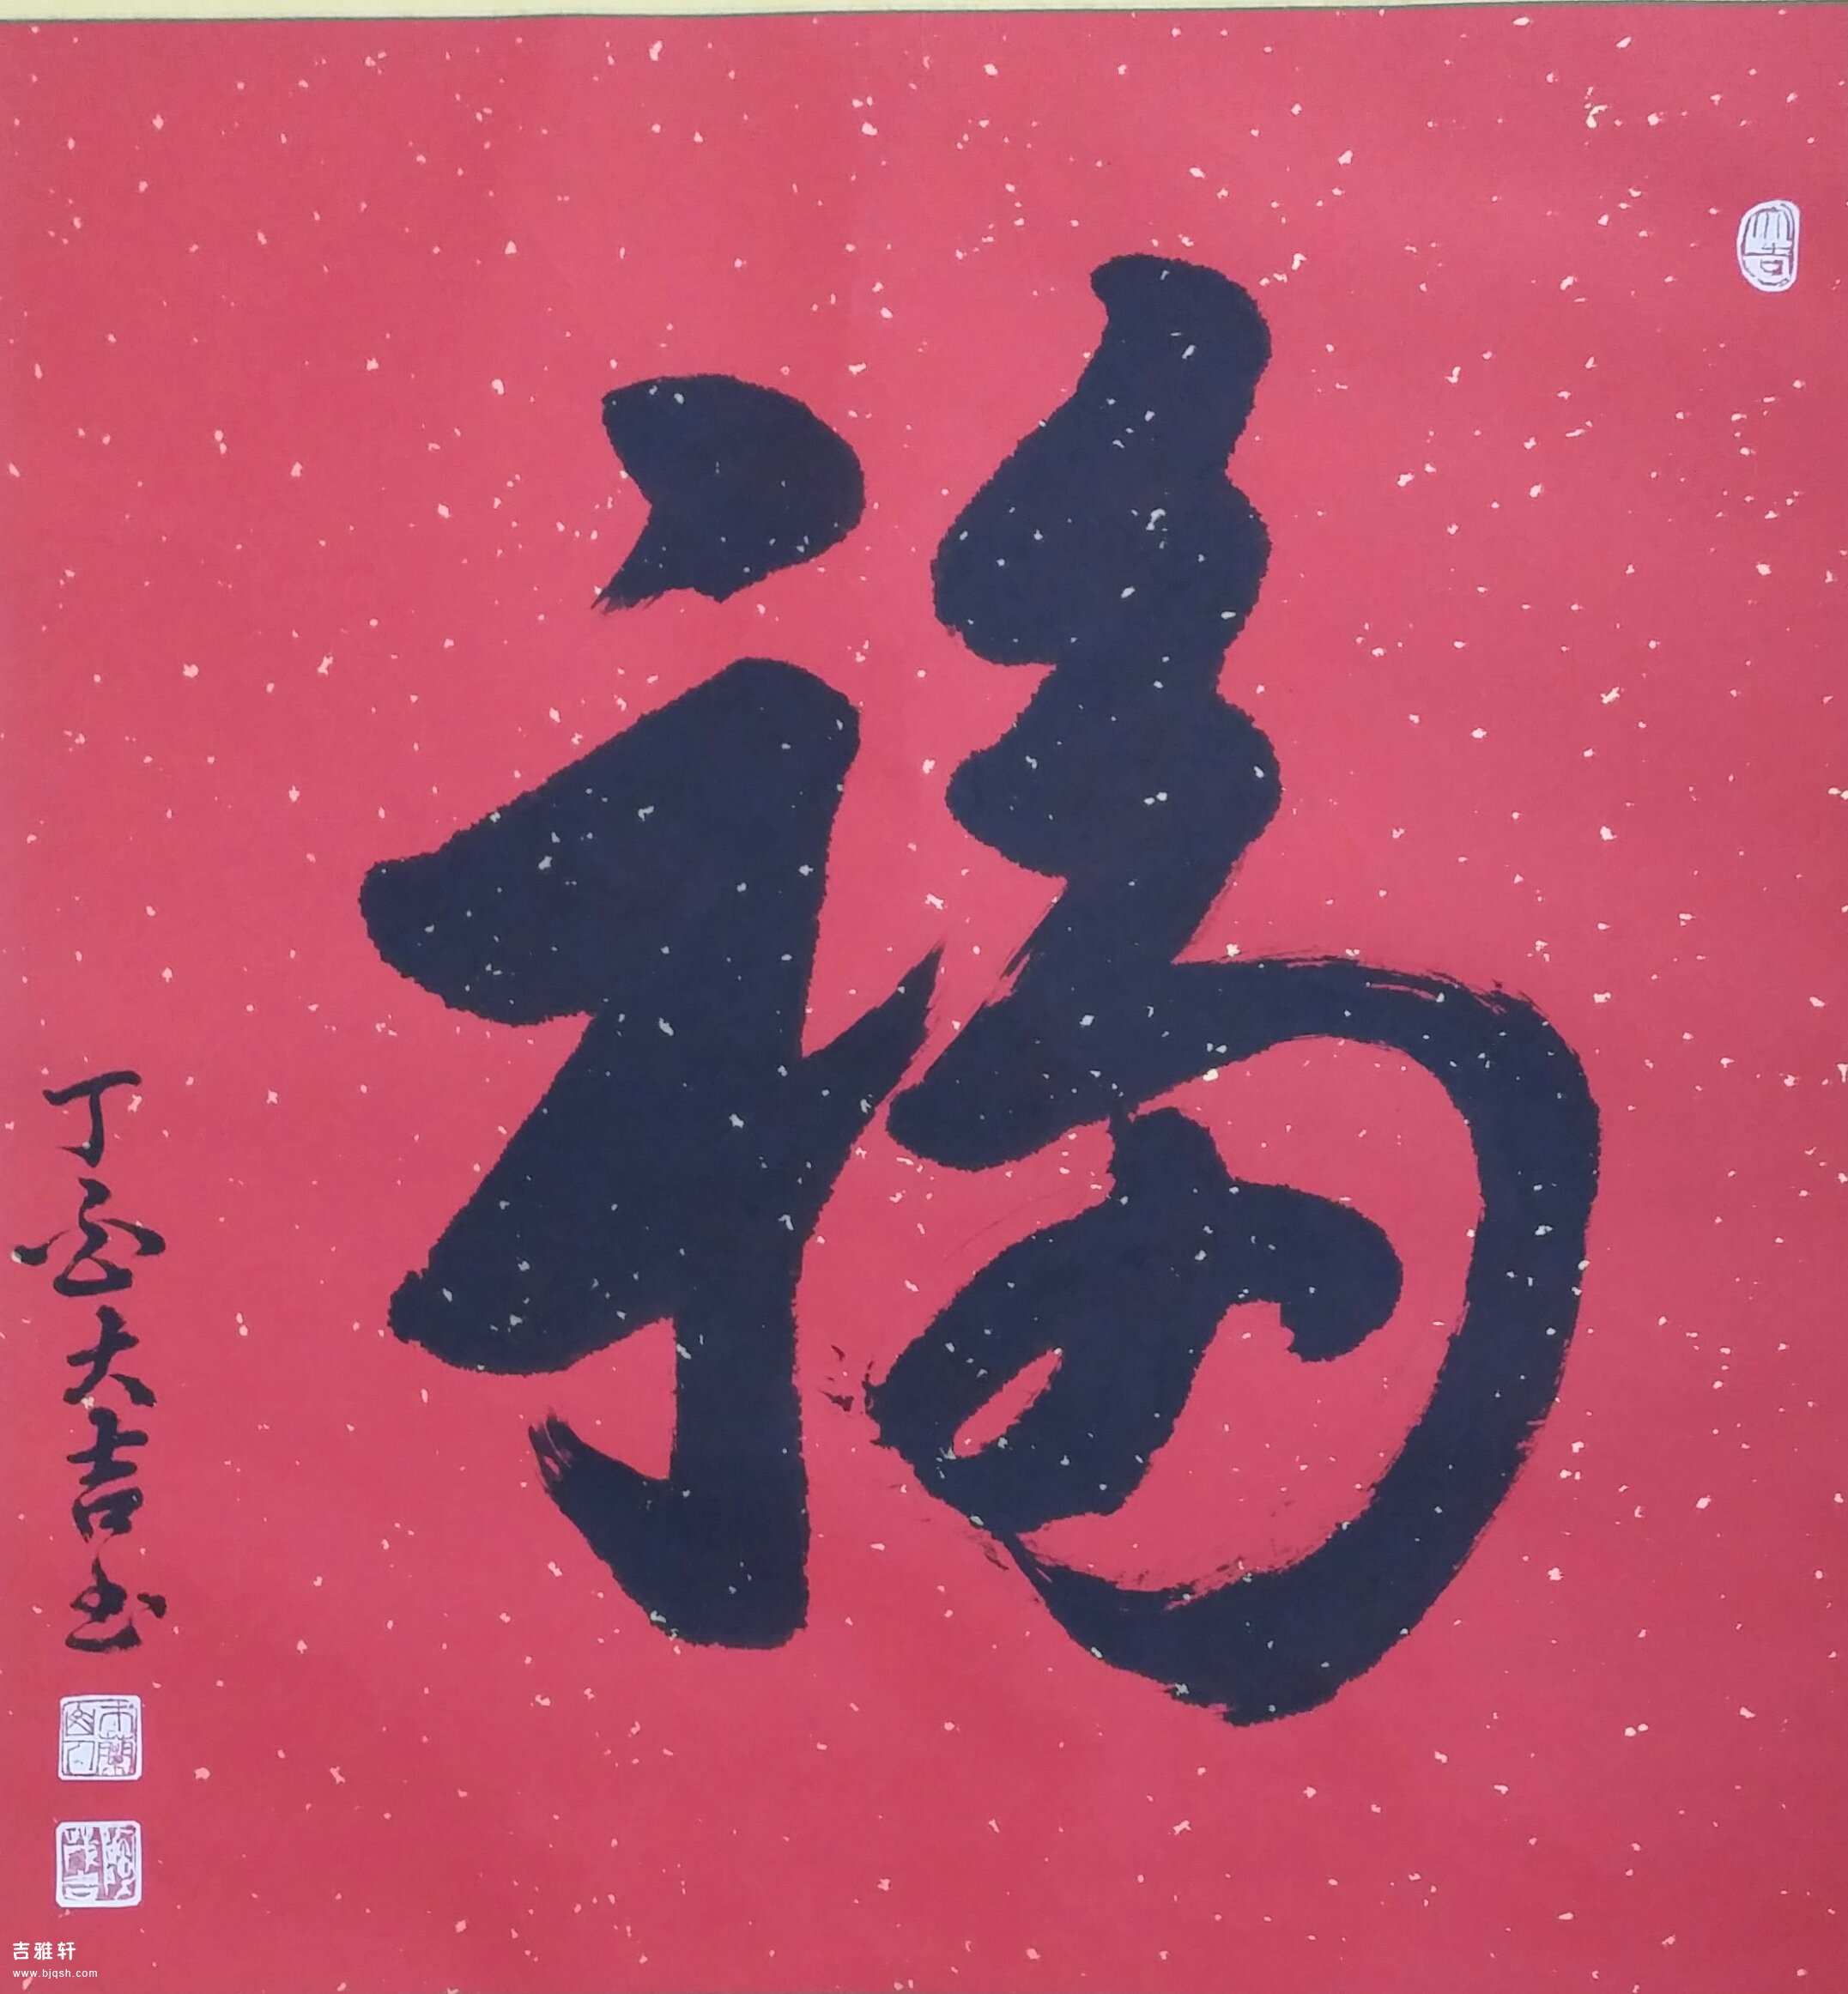 大吉
福
丁酉大吉书
吉雅轩
www.bjqsh.com